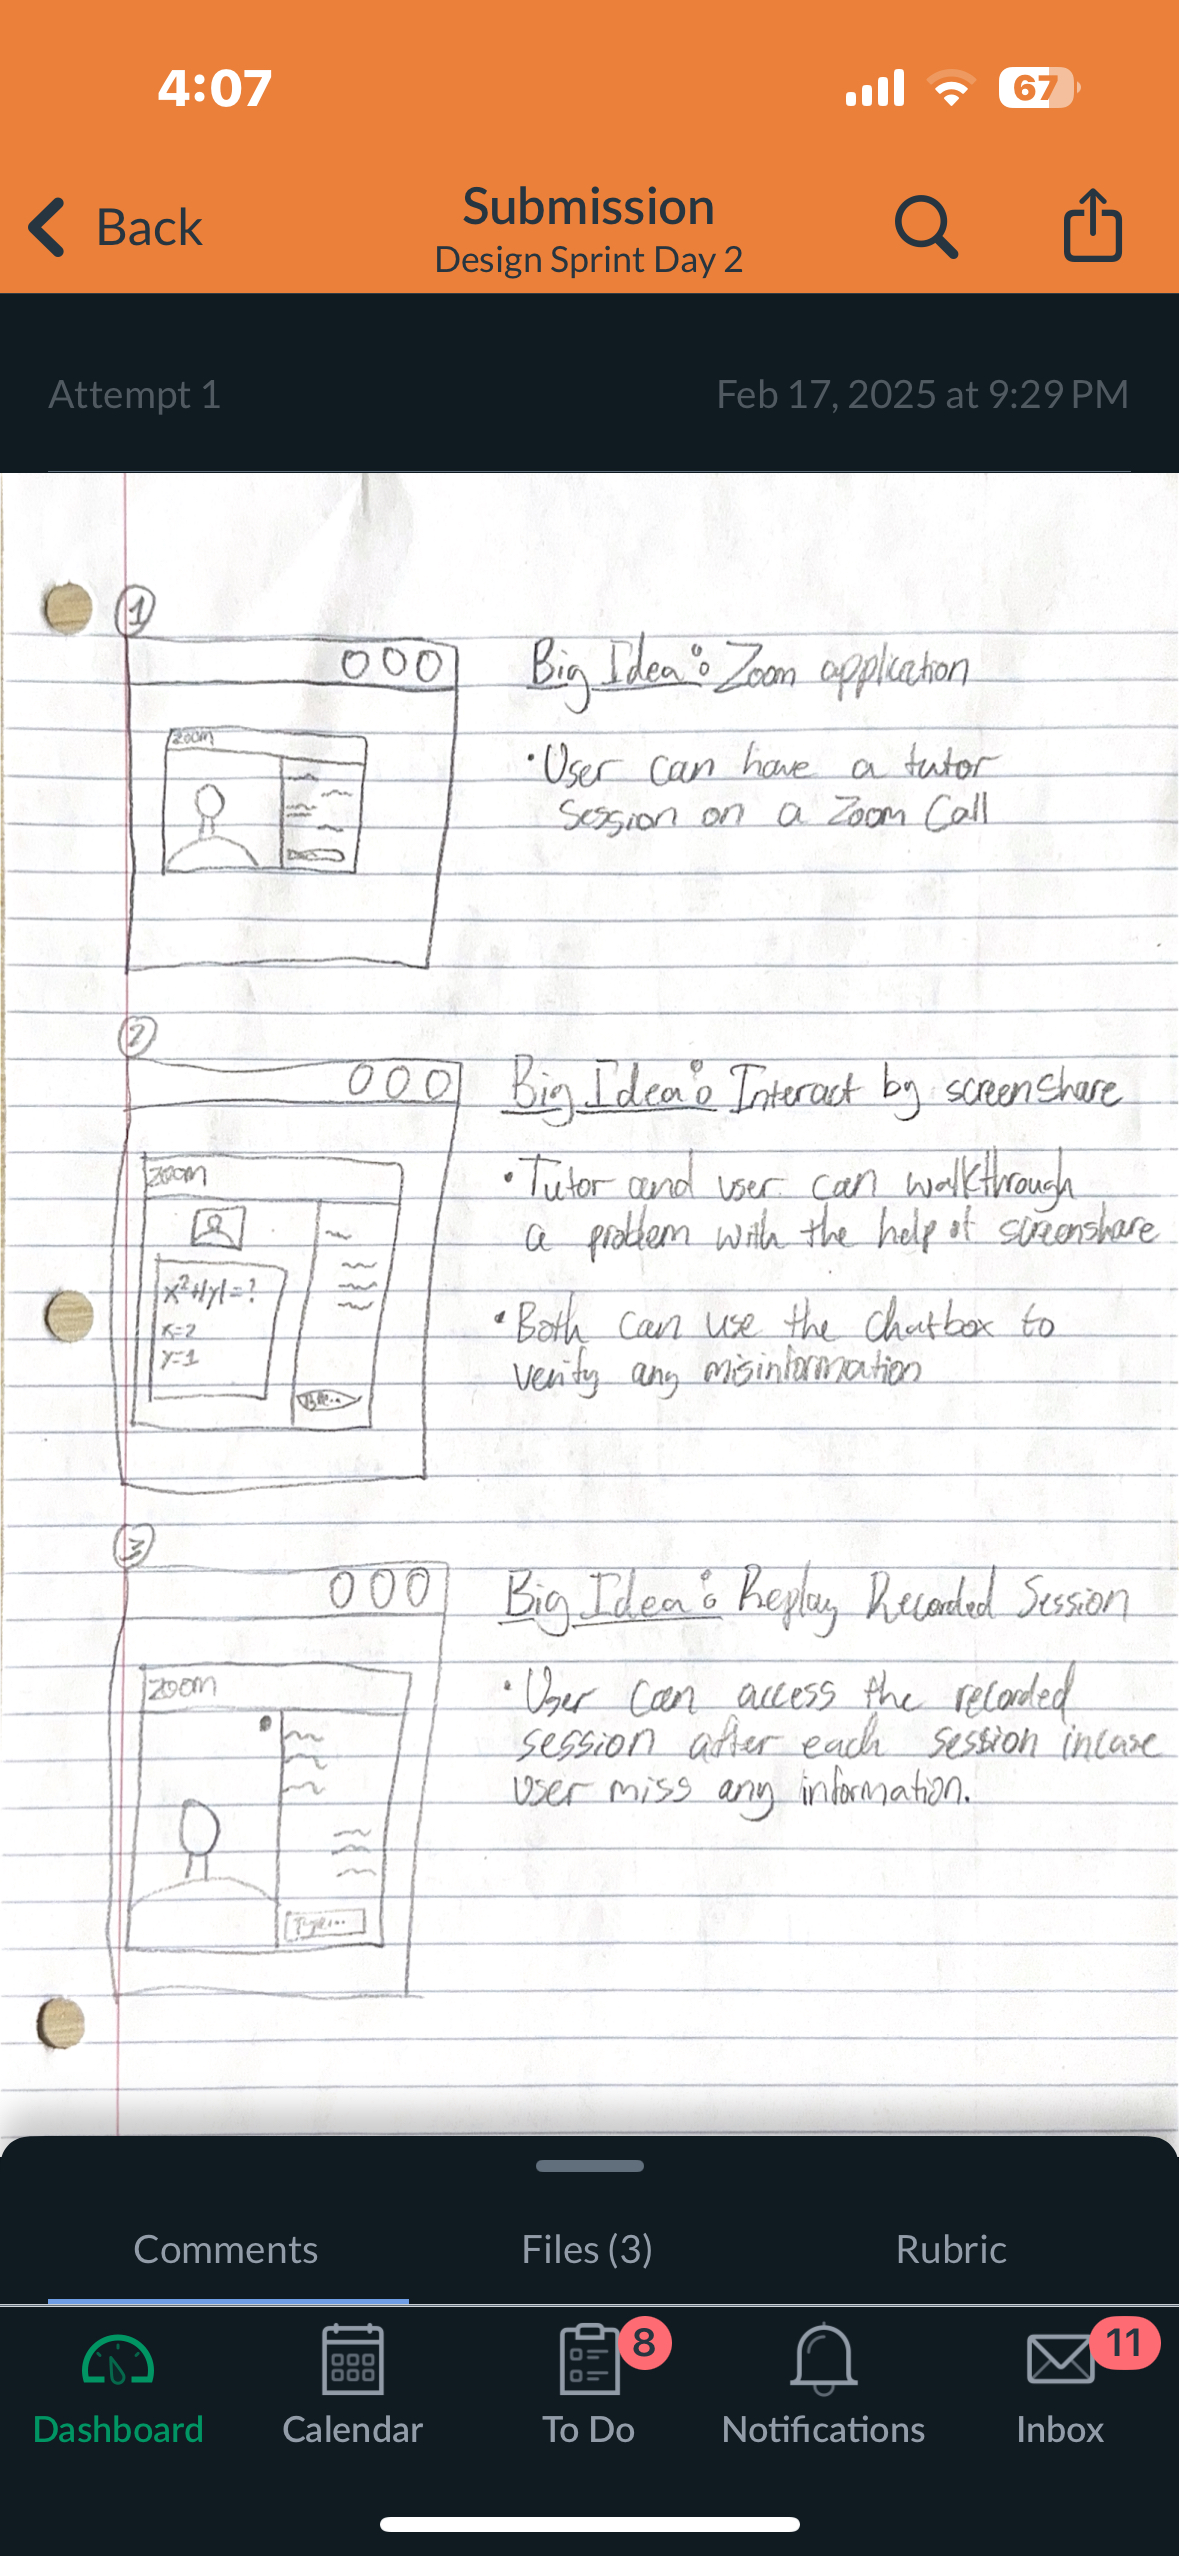 4:07
67
Back
Submission
Design Sprint Day 2
Attempt 1
Feb 17, 2025 at 9:29 PM
1
Big Idea: Zoom application
zoom
• User can have a tutor
session on a Zoom Call
2
Big Idea: Interact by screenshare
zoom
• Tutor and user can walkthrough
a problem with the help of screenshare
x²+|y|=?
x=2
y=1
• Both can use the chatbox to
verify any misinformation
3
Big Idea: Replay Recorded Session
zoom
• User can access the recorded
session after each session incase
user miss any information.
Type...
Comments
Files (3)
Rubric
8
11
Dashboard
Calendar
To Do
Notifications
Inbox